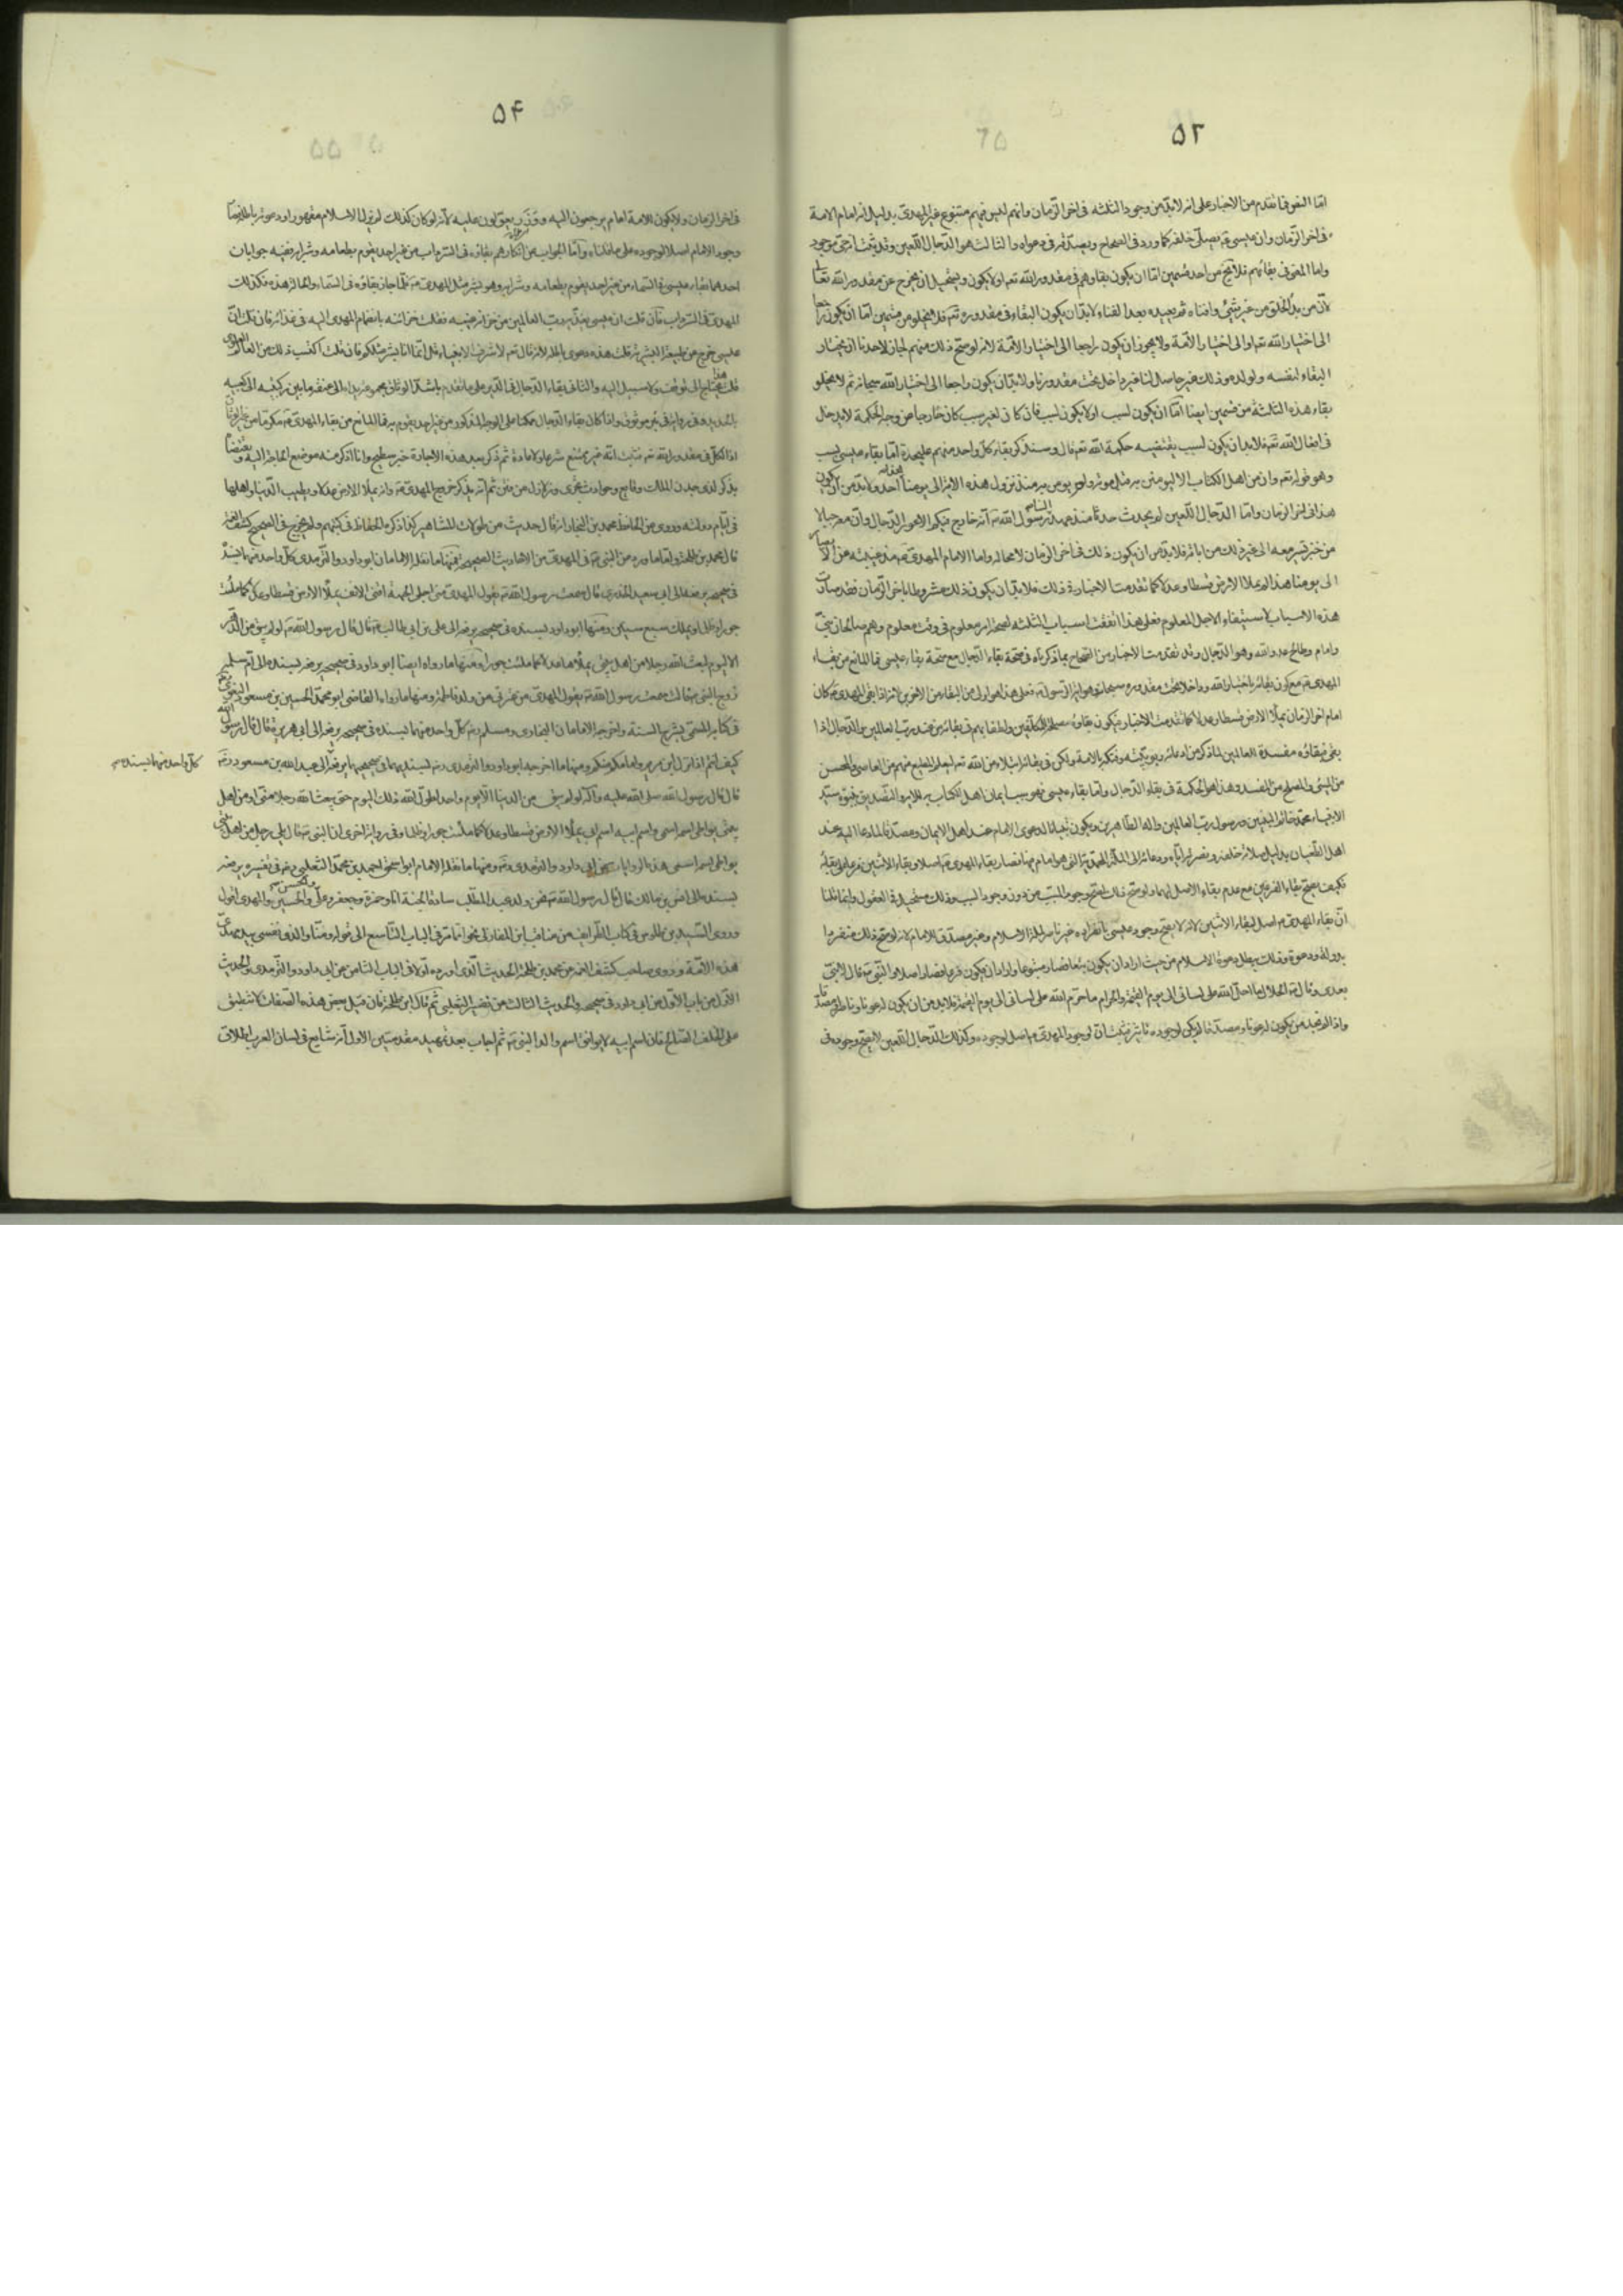 ۵۳
اما النقو فما تقدم من الاخبار على انه لابد من وجود الثلثة فى اخر الزمان وانهم ليس فيهم متبوع غير المهدى بدليل انه امام الامة
فى اخر الزمان وان عيسى يصلى خلفه كما ورد فى الصحاح ويصدقه فى دعواه والثالث هو الدجال اللعين وقد ثبت انه حى موجود
واما المعنى فى بقائهم فلا يخ من احد قسمين اما ان يكون بقاؤهم فى مقدور الله تعم او لا يكون ويستحيل ان يخرج عن مقدور الله تعالى
لان من بدأ الخلق من غير شئ وافناه ثم يعيده بعد الفناء لابد ان يكون البقاء فى مقدوره تم فلا يخلو من قسمين اما ان يكون راجعا
الى اختيار الله تعم او الى اختيار الامة ولا يجوز ان يكون راجعا الى اختيار الامة لانه لو صح ذلك منهم لجاز لاحدنا ان يختار
البقاء لنفسه ولولده وذلك غير حاصل لنا غير داخل تحت مقدورنا ولابد ان يكون راجعا الى اختيار الله سبحانه ثم لا يخلو
بقاء هذه الثلثة من قسمين ايضا اما ان يكون لسبب او لا يكون لسبب فان كان لغير سبب كان خارجا عن وجه الحكمة لا يدخل
فى افعال الله تعم فلابد ان يكون لسبب يقتضيه حكمة الله تعم قال وسنذكر بقاء كل واحد منهم عليحدة اما بقاء عيسى لسبب
وهو قوله تعم وان من اهل الكتاب الا ليومنن به قبل موته ولم يومن به منذ نزول هذه الاية الى يومنا هذا احد ولابد من ان يكون
هذا فى اخر الزمان واما الدجال اللعين لم يحدث حدثا منذ عهد الينا رسول الله انه خارج فيكم الاعور الدجال وان معه جبالا
من خبز تسير معه الى غير ذلك من اياته فلابد من ان يكون ذلك فى اخر الزمان لا محالة واما الامام المهدى مذ غيبته عن الابصار
الى يومنا هذا لم يملا الارض قسطا وعدلا كما تقدمت الاخبار فى ذلك فلابد ان يكون ذلك مشروطا باخر الزمان فقد صارت
هذه الاسباب لاستيفاء الاجل المعلوم فعلى هذا اتفقت اسباب الثلثة لصحة امر معلوم فى وقت معلوم وهم صالحان نبى
وامام وطالح عدو الله وهو الدجال وقد تقدمت الاخبار من الصحاح بما ذكرناه فى صحة بقاء الدجال مع صحة بقاء عيسى فما المانع من بقاء
المهدى مع كون بقائه باختيار الله وداخلا تحت مقدوره سبحانه وهو اية الرسول فعلى هذا هو اولى من البقاء من الاخرين لانه اذا بقى المهدى كان
امام اخر الزمان يملا الارض قسطا وعدلا كما تقدمت الاخبار فيكون بقاؤه مصلحة للمكلفين ولطفا بهم فى بقائه من عند رب العالمين والدجال اذا
بقى فبقاؤه مفسدة للعالمين لما ذكر من ادعائه ربوبيته وفتكه بالامة ولكن فى بقائه ابتلاء من الله تعم ليعلم المطيع منهم من العاصى والمحسن
من المسئ والمصلح من المفسد وهذا هو الحكمة فى بقاء الدجال واما بقاء عيسى فهو سبب ايمان اهل الكتاب به للاية والتصديق بنبوة سيد
الانبياء محمد خاتم النبيين ورسول رب العالمين واله الطاهرين ويكون تبيانا لدعوى الامام عند اهل الايمان ومصدقا لما دعا اليه عند
اهل الطغيان بدليل صلاته خلفه ونصرته اياه ودعائه الى الملة المحمدية التى هو امام فيها فصار بقاء المهدى اصلا وبقاء الاثنين فرعا على بقائه
فكيف يصح بقاء الفرعين مع عدم بقاء الاصل لهما ولو صح ذلك لصح وجود المسبب من دون وجود السبب وذلك مستحيل فى العقول وانما قلنا
ان بقاء المهدى اصل لبقاء الاثنين لانه لا يصح وجود عيسى بانفراده غير ناصر لملة الاسلام وغير مصدق للامام لانه لو صح ذلك لكان منفردا
بدولة ودعوة وذلك يبطل دعوة الاسلام من حيث اراد ان يكون تبعا فصار متبوعا واراد ان يكون فرعا فصار اصلا والنبى قال لا نبى
بعدى وقال الحلال ما احل الله على لسانى الى يوم القيمة والحرام ما حرم الله على لسانى الى يوم القيمة فلابد من ان يكون له عونا وناصرا ومصدقا
واذا لم يجد من يكون له عونا ومصدقا لم يكن لوجوده تاثير فثبت ان وجود المهدى اصل لوجوده وكذلك الدجال اللعين لا يصح وجوده فى
۵۴
فى اخر الزمان ولا يكون للامة امام يرجعون اليه ووزير يعولون عليه لانه لو كان كذلك لم يزل الاسلام مقهورا ودعوته باطلة فصار
وجود الامام اصلا لوجوده على ما قلناه واما الجواب عن انكارهم بقاؤه فى السرداب من غير احد يقوم بطعامه وشرابه ففيه جوابان
احدهما بقاء عيسى فى السماء من غير احد يقوم بطعامه وشرابه وهو بشر مثل المهدى فلما جاز بقاؤه فى السماء والحالة هذه فكذلك
المهدى فى السرداب فان قلت ان عيسى يغذيه رب العالمين من خزانة غيبه فقلت خزائنه لا تفنى بانضمام المهدى اليه فى غذائه فان قلت ان
عيسى خرج من طبيعة البشرية قلت هذه دعوى باطلة لانه قال تعم لاشرف الانبياء قل انما انا بشر مثلكم فان قلت اكتسب ذلك من العالم العلوى
قلت هذا يحتاج الى توقيف ولا سبيل اليه والثانى بقاء الدجال فى الدير على ما تقدم باشد الوثاق مجموعة يداه الى عنقه ما بين ركبتيه الى كعبيه
بالحديد وفى رواية فى بئر موثوق واذا كان بقاء الدجال ممكنا على الوجه المذكور من غير احد يقوم به فما المانع من بقاء المهدى مكرما من غير الوثاق
اذ الكل فى مقدور الله تعم فثبت انه غير ممتنع شرعا ولا عادة ثم ذكر بعد هذه الابحاث خبر سطيح وانا اذكر منه موضع الحاجة اليه ومقتضاه
يذكر لذى جدن الملك وقايع وحوادث تجرى وزلازل من فتن ثم انه يذكر خروج المهدى وانه يملأ الارض عدلا ويطيب الدنيا واهلها
فى ايام دولته وروى عن الحافظ محمد بن النجار انه قال حديث من طوالات المشاهير كذا ذكره الحفاظ فى كتبهم ولم يخرج فى الصحيح كشف الغمة
قال محمد بن طلحة واما ما ورد عن النبى فى المهدى من الاحاديث الصحيحة فمنها ما نقله الامامان ابو داود والترمذى كل واحد منهما بسنده
فى صحيحه يرفعه الى ابى سعيد الخدرى قال سمعت رسول الله يقول المهدى منى اجلى الجبهة اقنى الانف يملأ الارض قسطا وعدلا كما ملئت
جورا وظلما ويملك سبع سنين ومنها ابو داود بسنده فى صحيحه يرفعه الى على بن ابى طالب قال قال رسول الله لو لم يبق من الدهر
الا يوم لبعث الله رجلا من اهل بيتى يملأها عدلا كما ملئت جورا ومنها ما رواه ايضا ابو داود فى صحيحه يرفعه بسنده الى ام سلمة
زوج النبى قالت سمعت رسول الله يقول المهدى من عترتى من ولد فاطمة ومنها ما رواه القاضى ابو محمد الحسين بن مسعود البغوى
فى كتابه المسمى بشرح السنة واخرجه الامامان البخارى ومسلم كل واحد منهما بسنده فى صحيحه يرفعه الى ابى هريرة قال قال رسول الله
كيف انتم اذا نزل ابن مريم وامامكم منكم ومنها ما اخرجه ابو داود والترمذى بسنديهما فى صحيحيهما يرفعه الى عبد الله بن مسعود
كل واحد منهما بسنده
قال قال رسول الله صلى الله عليه وآله لو لم يبق من الدنيا الا يوم واحد لطول الله ذلك اليوم حتى يبعث الله رجلا منى او من اهل
بيتى يواطى اسمه اسمى واسم ابيه اسم ابى يملأ الارض قسطا وعدلا كما ملئت جورا وظلما وفى رواية اخرى ان النبى قال يلى رجل من اهل بيتى
يواطى اسمه اسمى هذه الروايات عن ابى داود والترمذى ومنها ما نقله الامام ابو اسحق احمد بن محمد الثعلبى فى تفسيره يرفعه
بسنده الى انس بن مالك قال قال رسول الله نحن ولد عبد المطلب سادة الجنة انا وحمزة وجعفر وعلى والحسن والحسين والمهدى اقول
وروى السيد بن طاوس فى كتاب الطرايف من مناقب ابن المغازلى نحوا مما مر فى الباب التاسع الى قوله ومنا والذى نفسى بيده مهدى
هذه الامة وروى صاحب كشف الغمة عن محمد بن طلحة الحديث الذى اورده اولا فى الباب الثامن عن ابى داود والترمذى والحديث
الاول من باب الاول عن ابى داود فى صحيحه والحديث الثالث من تفسير الثعلبى ثم قال ابن طلحة فان قيل بعض هذه الصفات لا تنطبق
على الخلف الصالح فان اسم ابيه لا يوافق اسم والد النبى ثم اجاب بعد تمهيد مقدمتين الاول انه شايع فى لسان العرب اطلاق